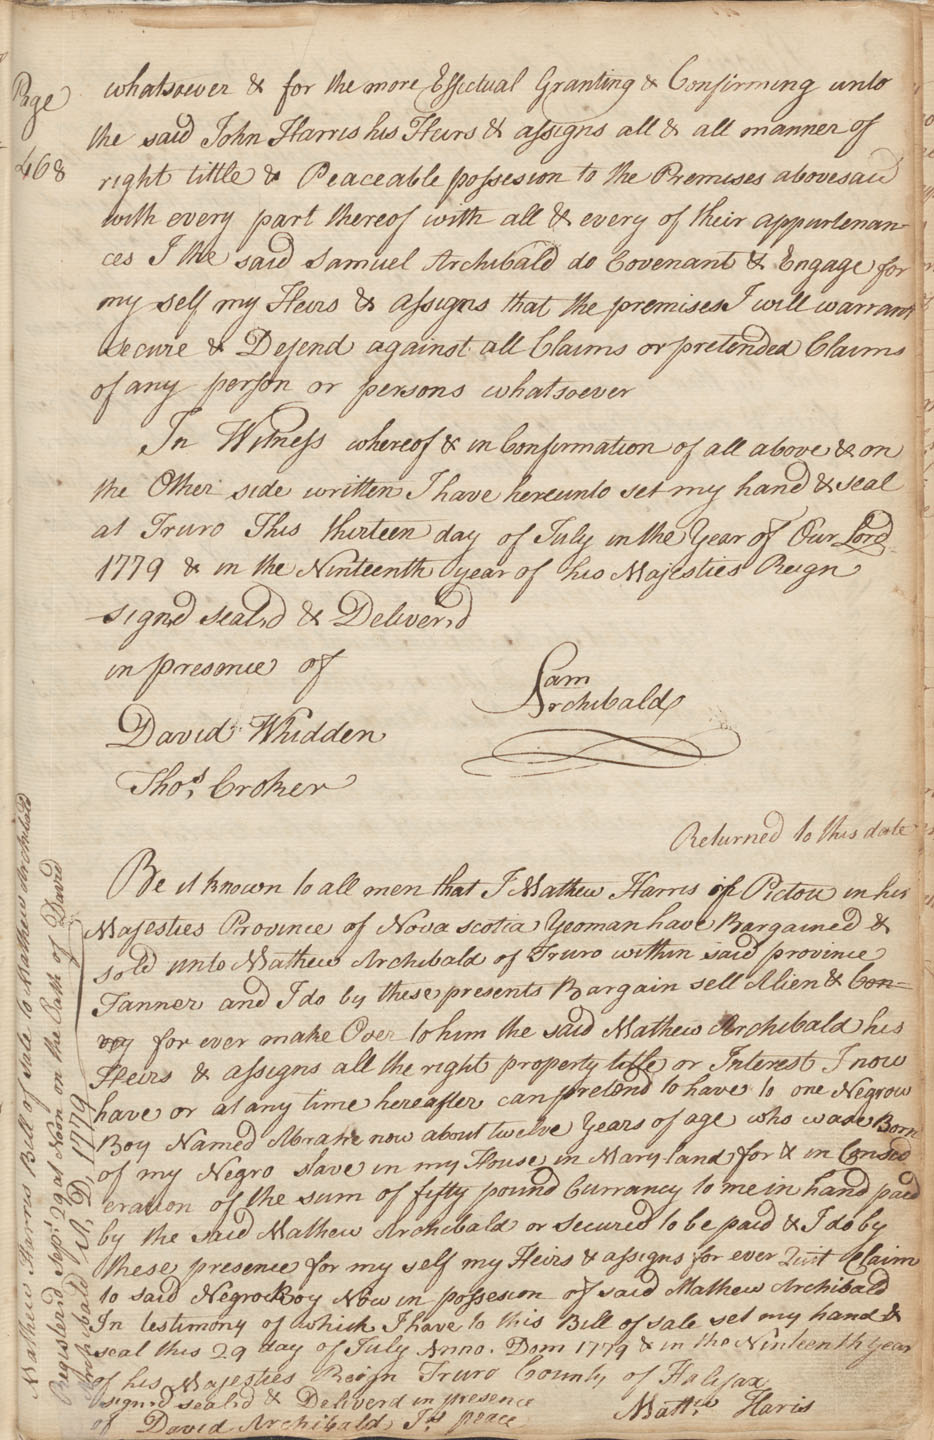 Page
468
whatsoever & for the more Effectual Granting & Confirming unto
the said John Harris his Heirs & assigns all & all manner of
right tittle & Peaceable possesion to the Premises abovesaid
with every part thereof with all & every of their appurtenan-
ces I the said Samuel Archibald do Covenant & Engage for
my self my Heirs & assigns that the premises I will warrant
secure & Defend against all Claims or pretended Claims
of any person or persons whatsoever
In Witness whereof & in Confirmation of all above & on
the Other side written I have hereunto set my hand & seal
at Truro This thirteen day of July in the Year of Our Lord
1779 & in the Ninteenth year of his Majesties Reign
signd seald & Deliverd
in presence of
Sam
Archibald
David Whidden
Thos. Croker
Returned to this date
Be it known to all men that I Mathew Harris of Pictou in his
Majesties Province of Nova scotia Yeoman have Bargained &
sold unto Mathew Archibald of Truro within said province
Tanner and I do by these presents Bargain sell Alien & Con=
vey for ever make Over to him the said Mathew Archibald his
Heirs & assigns all the right property title or Interest I now
have or at any time hereafter can pretend to have to one Negrow
Boy Named Abram now about twelve Years of age who was Born
of my Negro slave in my House in Maryland for & in Consid
eration of the sum of fifty pound Currancy to me in hand paid
by the said Mathew Archibald or secured to be paid & I do by
these presence for my self my Heirs & assigns for ever Quit Claim
to said Negrow Boy Now in possesion of said Mathew Archibald
In testimony of which I have to this Bill of sale set my hand &
seal this 29 day of July Anno. Dom 1779 & in the Ninteenth year
of his Majesties Reign Truro County of Halifax
signd seald & Deliverd in presence
of David Archibald Jst peace
Mattw Haris
Mathew Harris Bill of Sale to Mathew Archibald
Registerd Sepr. 29 at Noon on the Oath of David
Archibald A,D, 1779